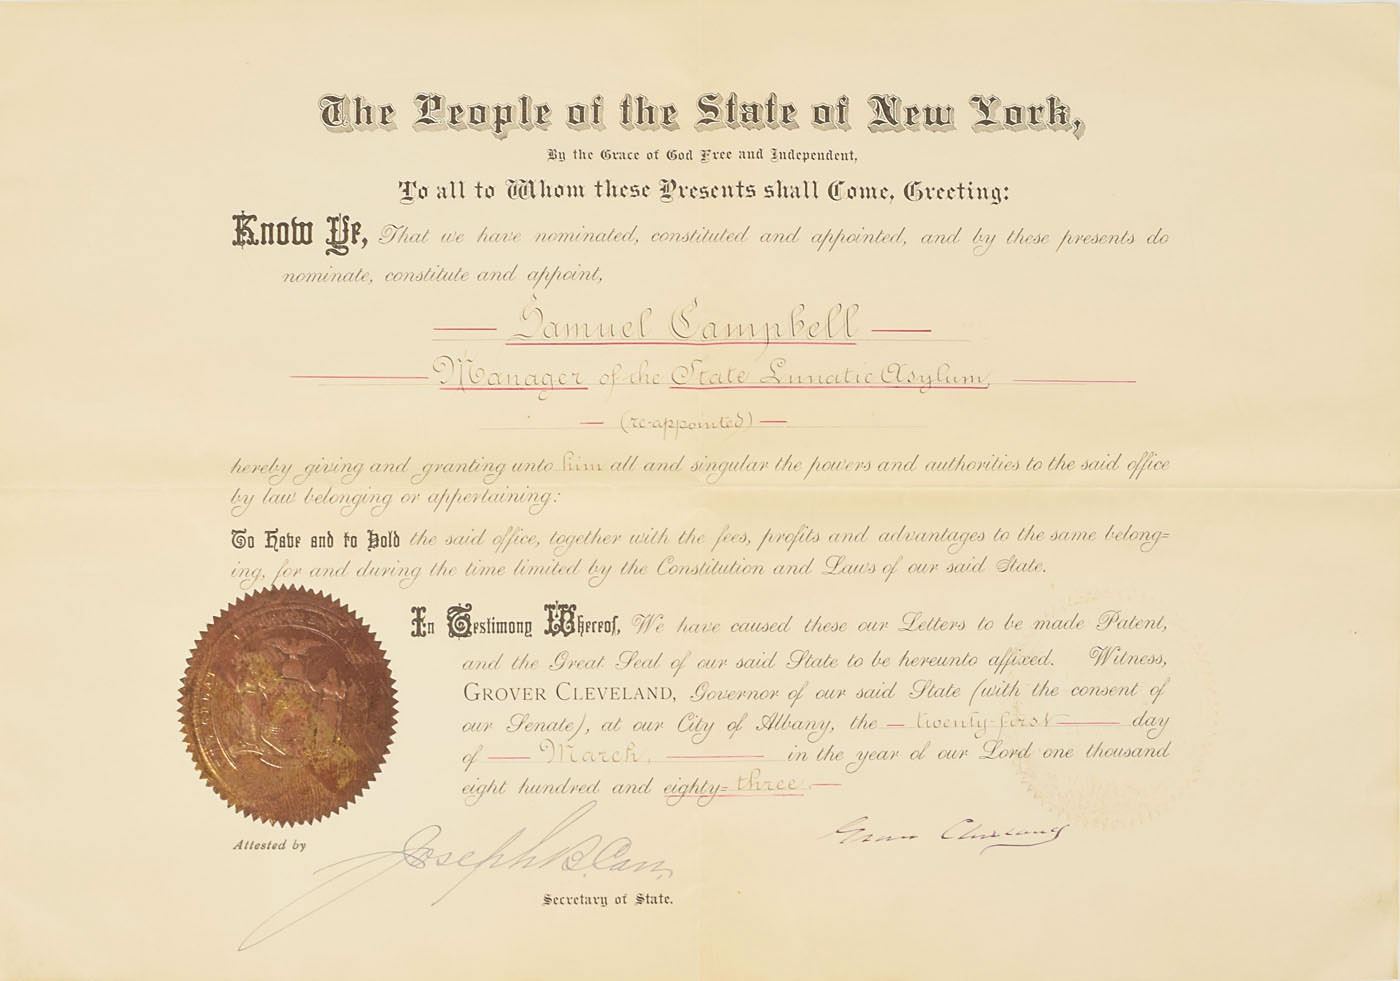 The People of the State of New York,
By the Grace of God Free and Independent,
To all to Whom these Presents shall Come, Greeting:
Know Ye, That we have nominated, constituted and appointed, and by these presents do
nominate, constitute and appoint,
Samuel Campbell
Manager of the State Lunatic Asylum,
(re-appointed)
hereby giving and granting unto him all and singular the powers and authorities to the said office
by law belonging or appertaining:
To Have and to Hold the said office, together with the fees, profits and advantages to the same belong=
ing, for and during the time limited by the Constitution and Laws of our said State.
In Testimony Whereof, We have caused these our Letters to be made Patent,
and the Great Seal of our said State to be hereunto affixed. Witness,
GROVER CLEVELAND, Governor of our said State (with the consent of
our Senate), at our City of Albany, the twenty-first day
of March, in the year of our Lord one thousand
eight hundred and eighty=three.
Grover Cleveland
Attested by Joseph B. Carr,
Secretary of State.